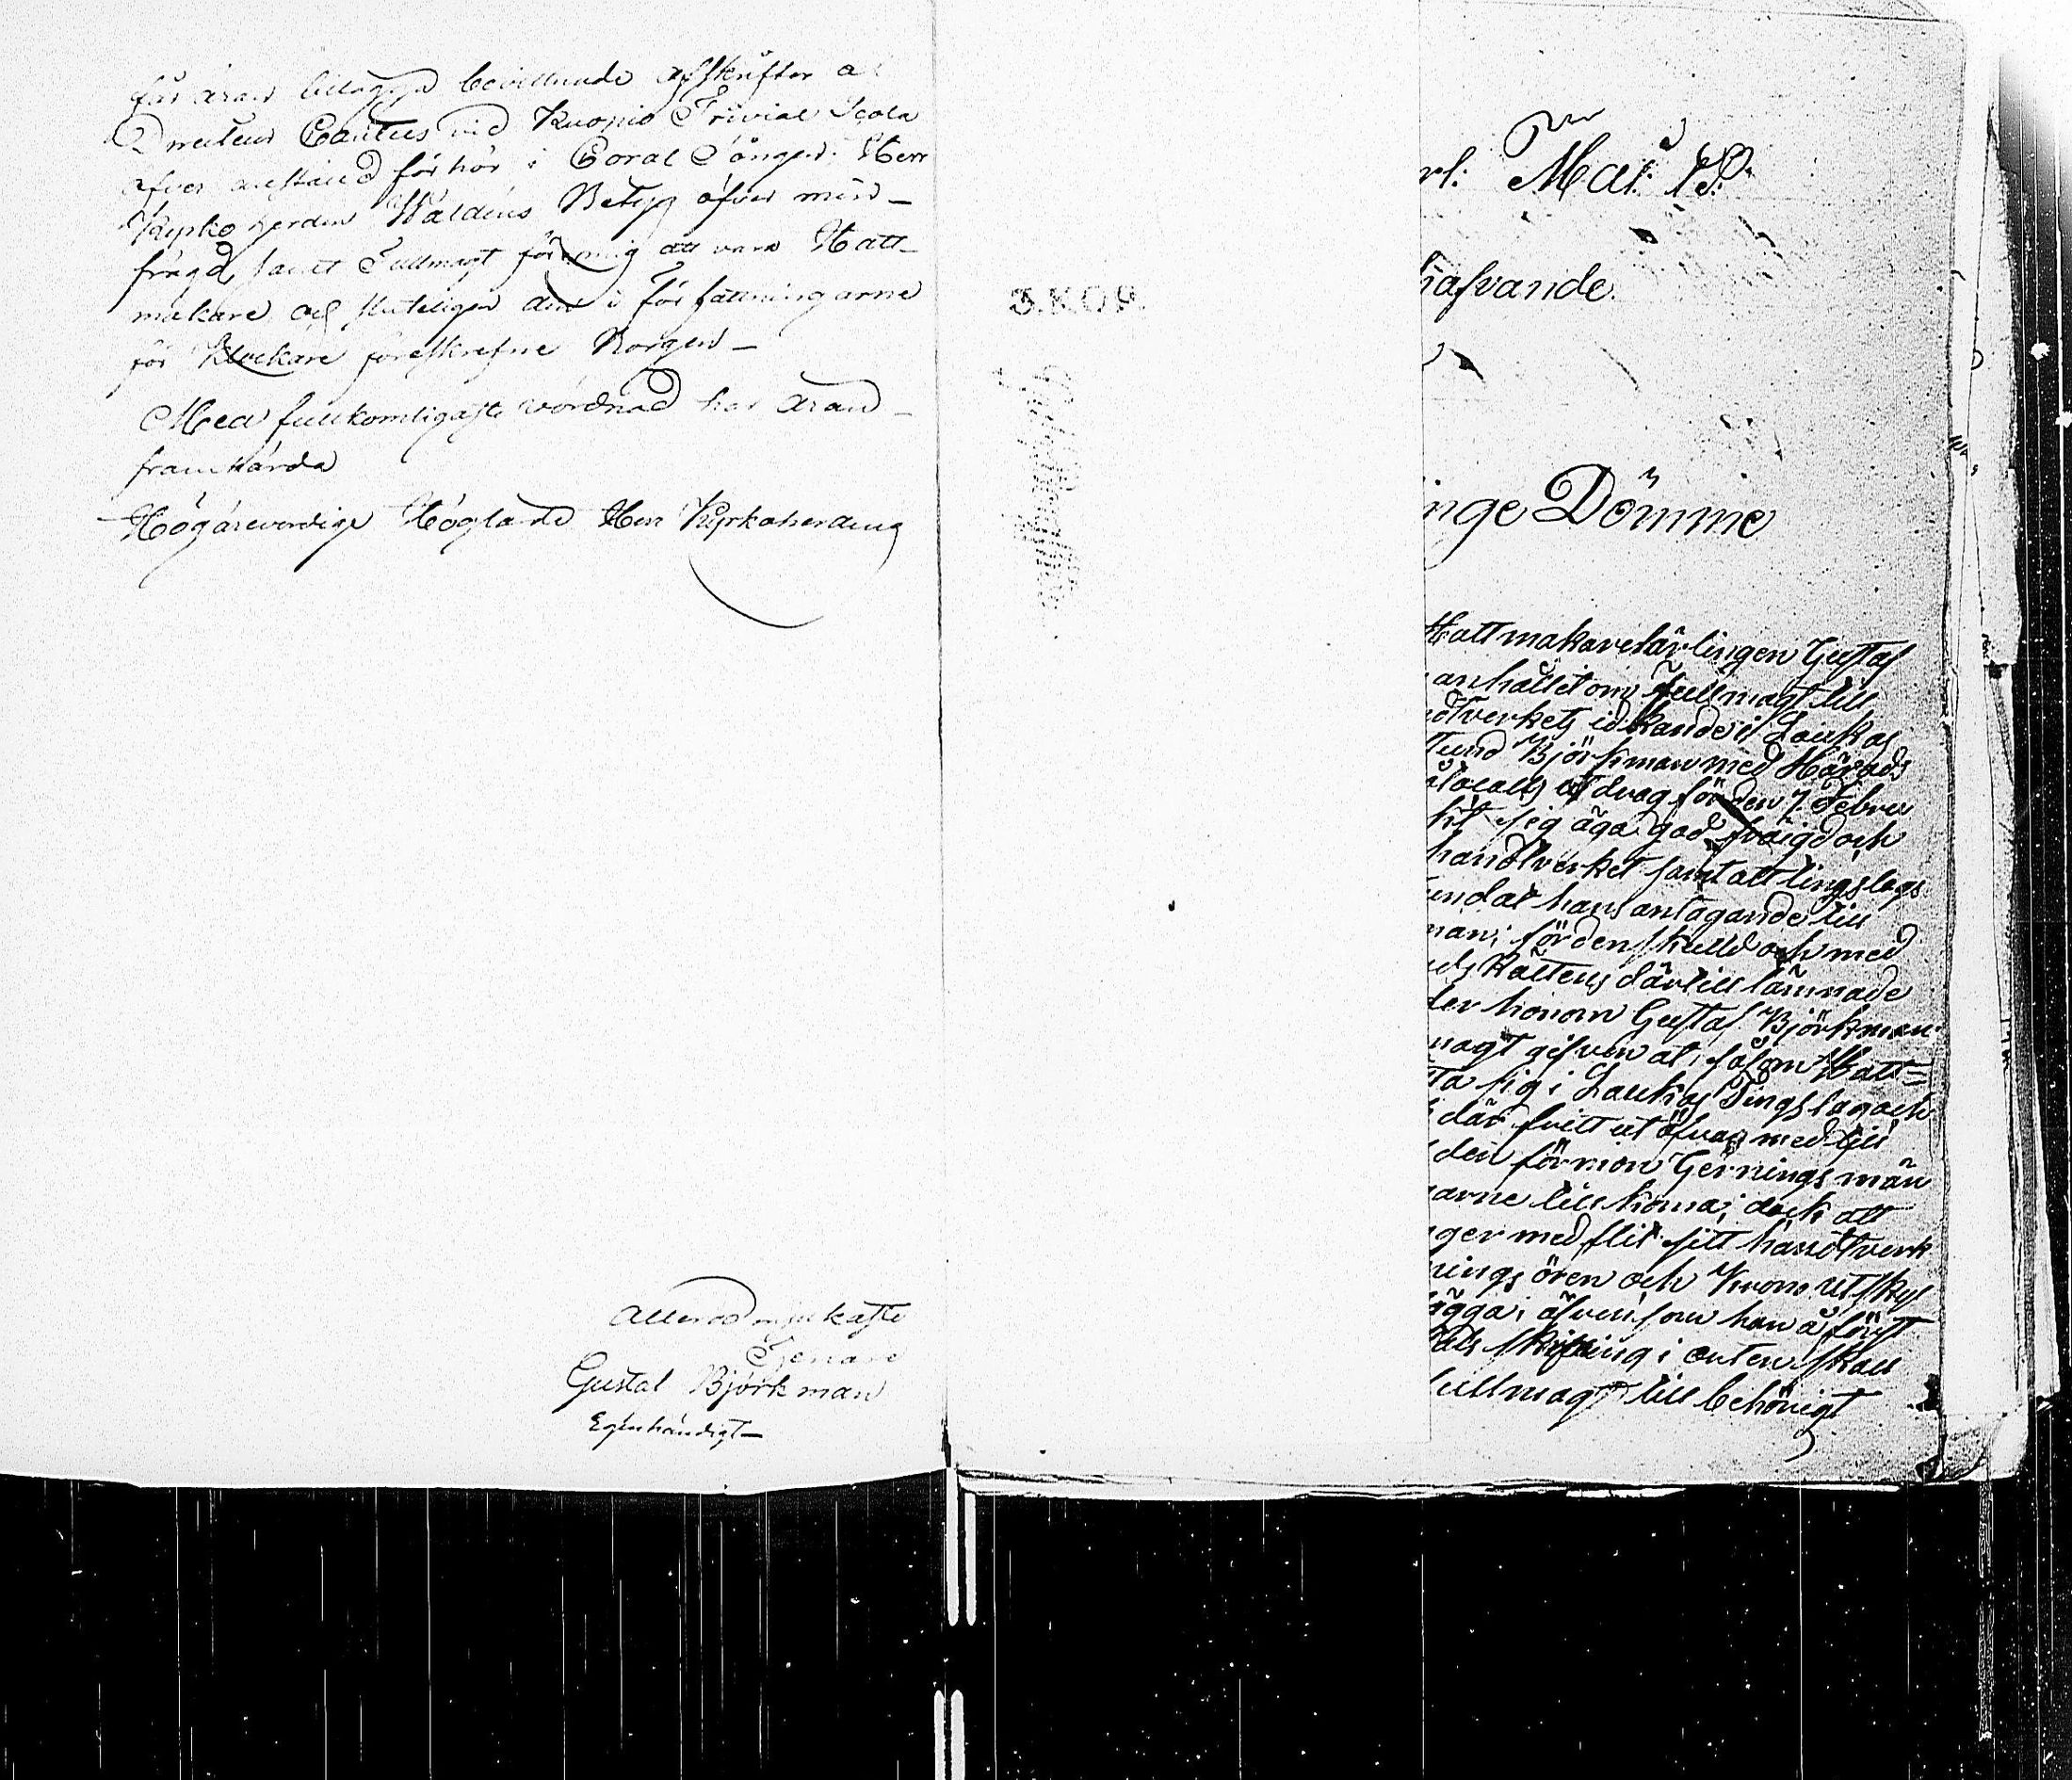 får äran bilägga bevittnade afskrifter af
Directeur Cantus vid Kuopio Trivial Scola
öfver anstäld förhör i Coral Sången: Herr
Kyrkoherden Waldéns Betyg öfver min
frägd, samt Fullmagt för mig att vara Hatt-
makare, och sluteligen den i författningarne
för Klockare föreskrefne Borgen —
Med fullkomligaste vördnad har äran
framhärda
Högärevördige Höglärde Herr Kyrkoherdens
allerödmjukaste
Tjenare
Gustaf Björkman
Egenhändigt —
3. KOP.
rl: Mai: ts:
hafvande
inge Dömme
Hattmakarelärlingen Gustaf
anhållit om fullmagt till
ndtverkets idkande i Laukas
Björkman med Härads
utdrag för den 7. Februa
sig äga god fräigd och
handtverket samt att tingslags
undat hans antagande till
man; för den skulld och med
ds Rättens därtill lämnade
der honom Gustaf Björkman
magt gifven at, såsom Hatt=
ta sig i Laukas Tingslag och
där fritt utöfva med till
den förmon Gerningsmän
arne tillkoma; dock att
ger med flit sitt handtverk
nings ören och Krono utskyl
ägga; äfvensom han å först
skrifning i orten skall
fullmagt till behörigt